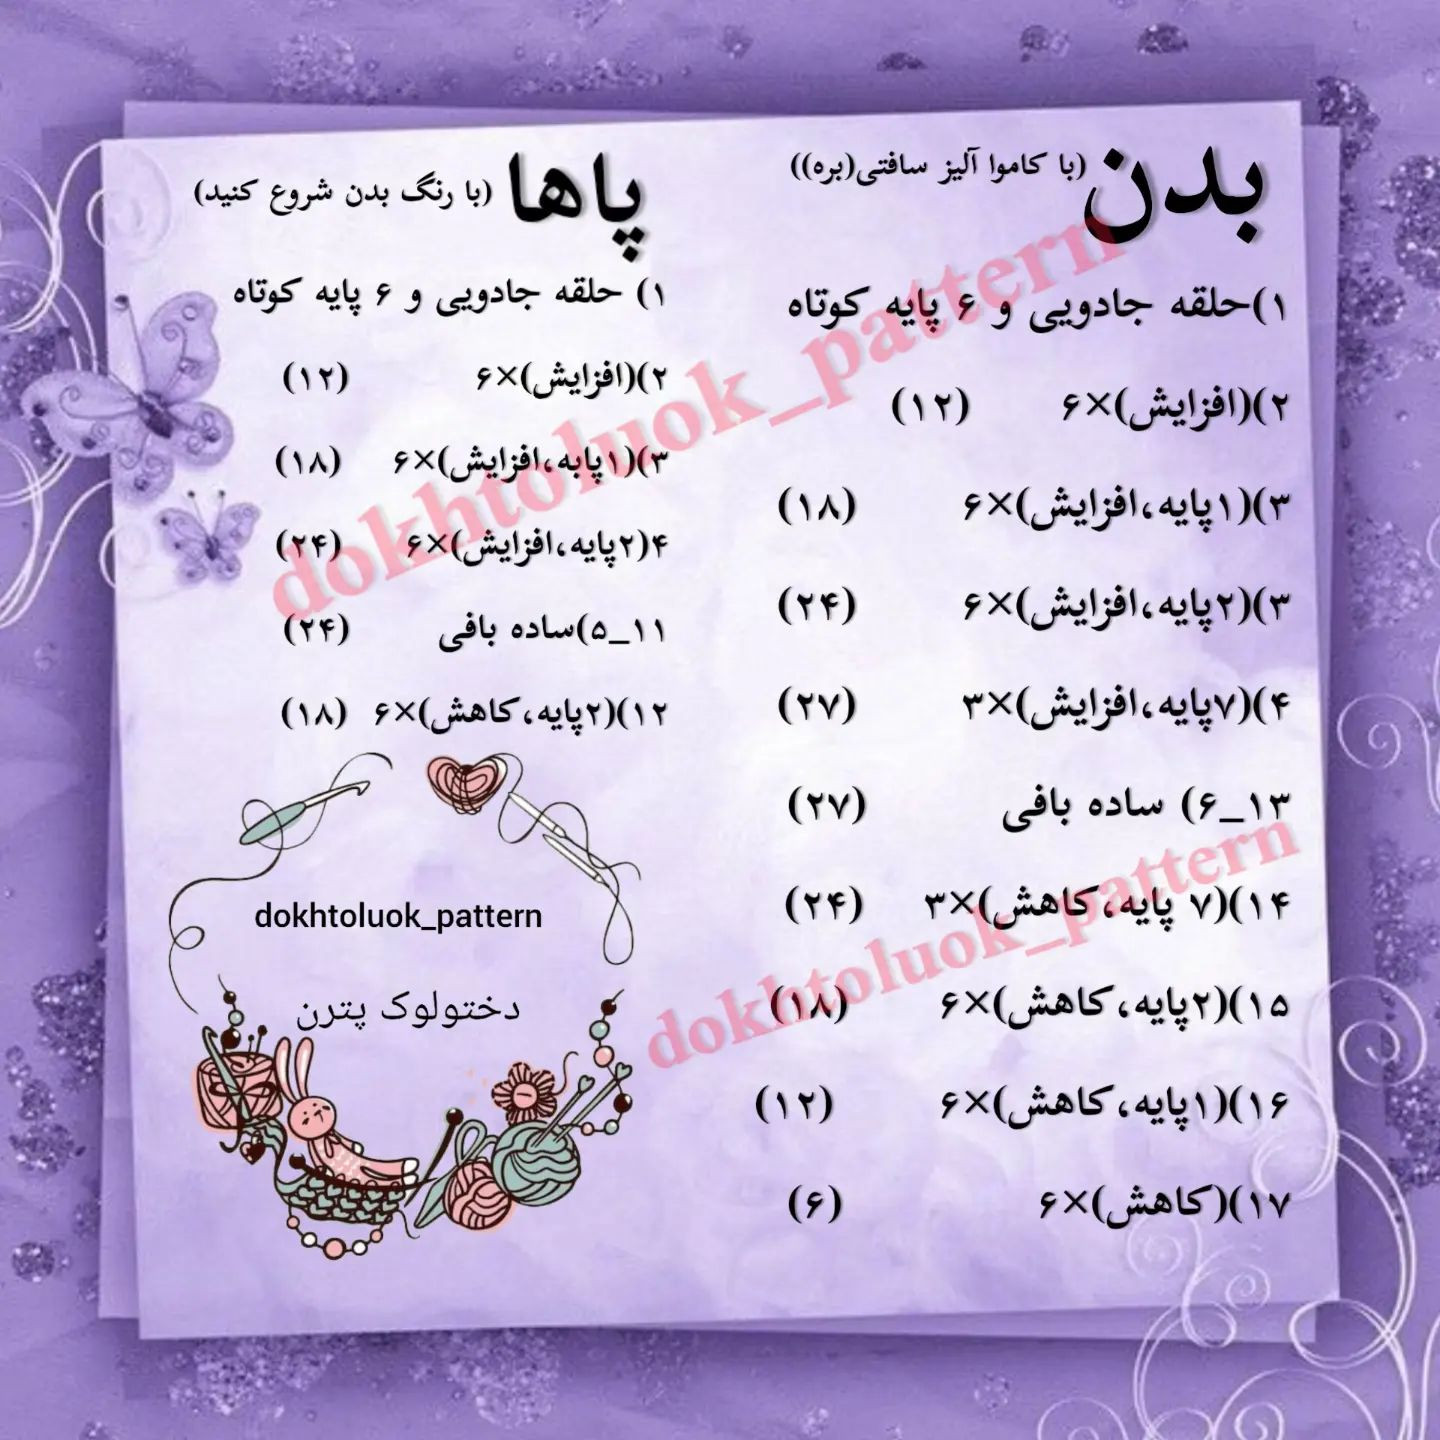 بدن (با کاموا آلیز سافتی(بره))
۱)حلقه جادویی و ۶ پایه کوتاه
۲)(افزایش)×۶ (۱۲)
۳)(۱پایه،افزایش)×۶ (۱۸)
۳)(۲پایه،افزایش)×۶ (۲۴)
۴)(۷پایه،افزایش)×۳ (۲۷)
۱۳_۶) ساده بافی (۲۷)
۱۴)(۷ پایه،کاهش)×۳ (۲۴)
۱۵)(۲پایه،کاهش)×۶ (۱۸)
۱۶)(۱پایه،کاهش)×۶ (۱۲)
۱۷)(کاهش)×۶ (۶)
پاها (با رنگ بدن شروع کنید)
۱) حلقه جادویی و ۶ پایه کوتاه
۲)(افزایش)×۶ (۱۲)
۳)(۱پابه،افزایش)×۶ (۱۸)
۴(۲پایه،افزایش)×۶ (۲۴)
۱۱_۵)ساده بافی (۲۴)
۱۲)(۲پایه،کاهش)×۶ (۱۸)
dokhtoluok_pattern
دختولوک پترن
dokhtoluok_pattern
dokhtoluok_pattern